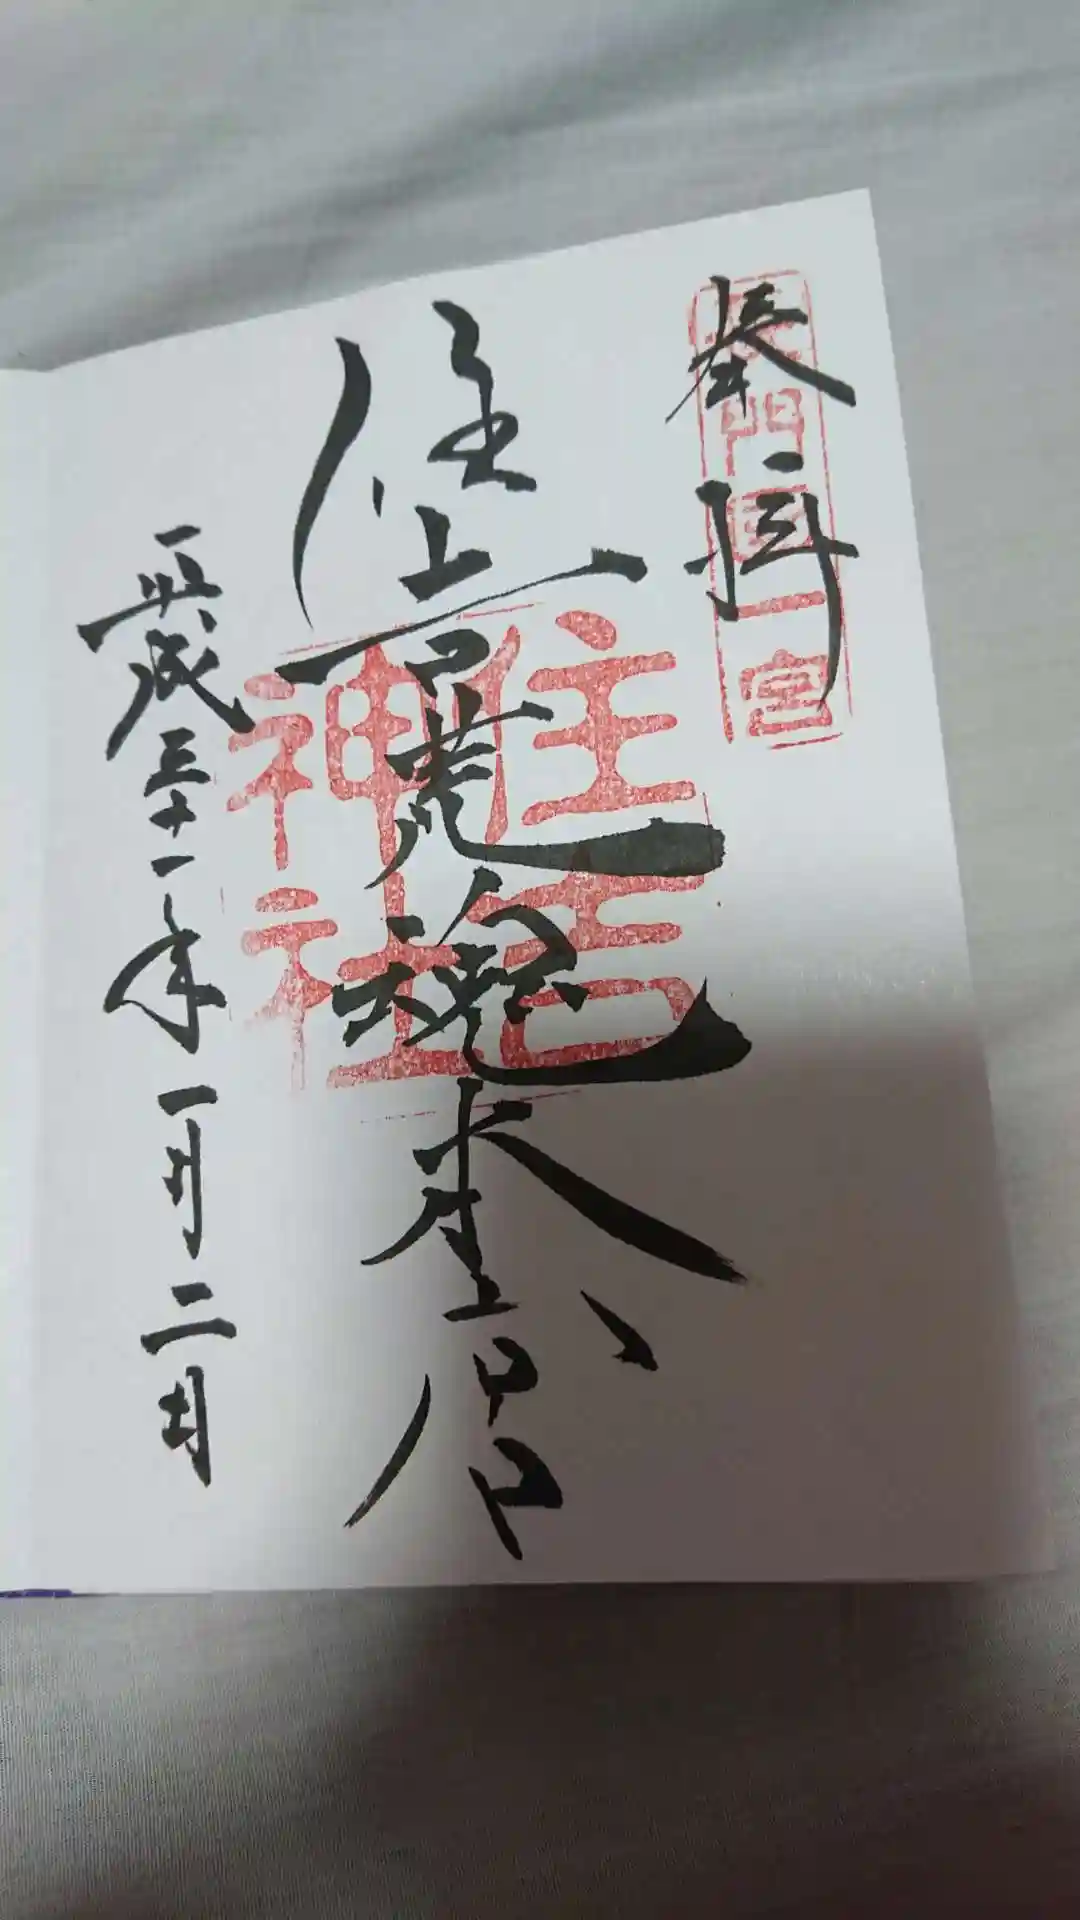 奉拝
長門國一宮
住吉荒魂本宮
住吉神社
平成三十一年一月二日